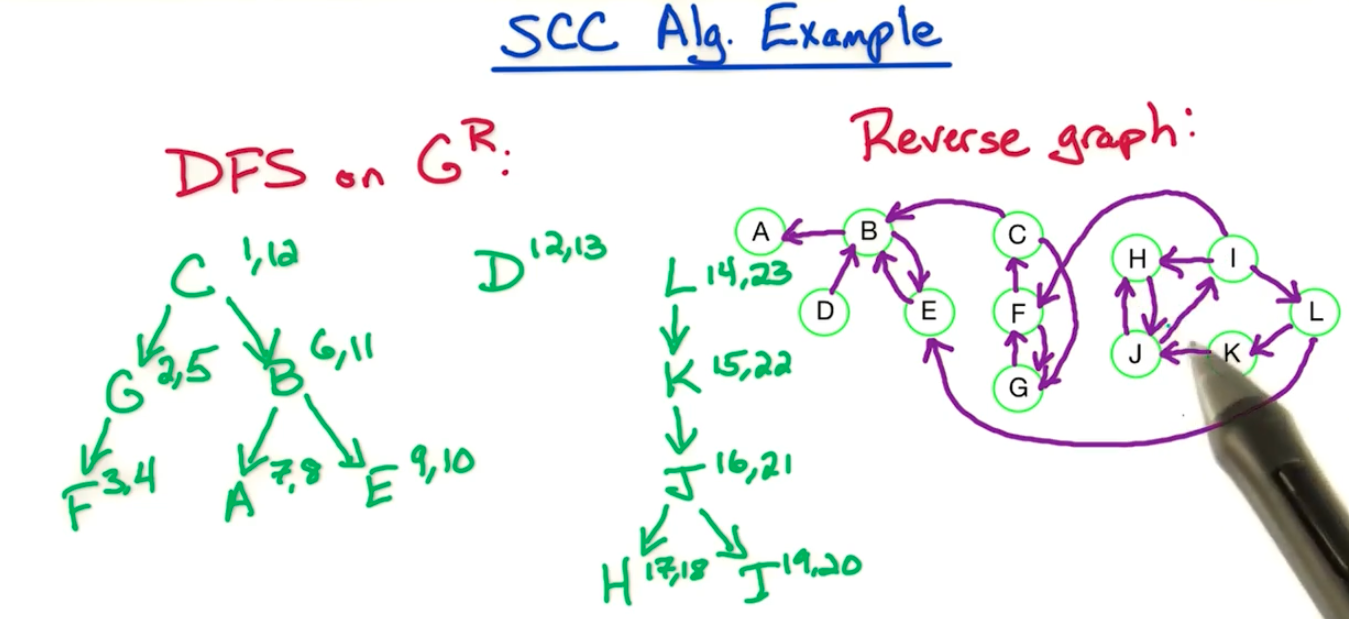 SCC Alg. Example
DFS on G^R:
C 1,12
G 2,5
B 6,11
F 3,4
A 7,8
E 9,10
D 12,13
L 14,23
K 15,22
J 16,21
H 17,18
I 19,20
Reverse graph:
A
B
C
H
I
D
E
F
L
J
K
G